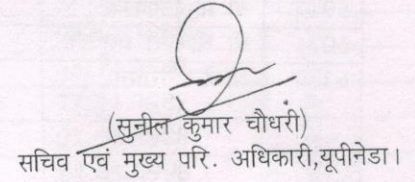 (सुनील कुमार चौधरी)
सचिव एवं मुख्य परि. अधिकारी,यूपीनेडा।